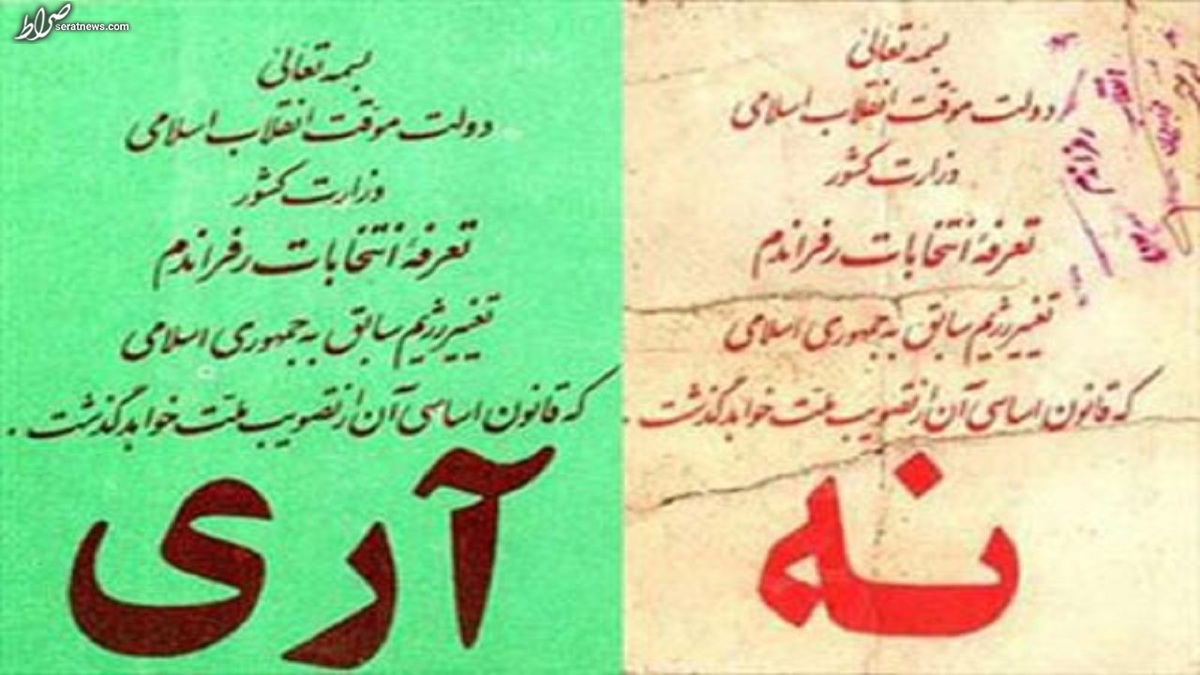 صراط
seratnews.com
بسمه تعالی
دولت موقت انقلاب اسلامی
وزارت کشور
تعرفهٔ انتخابات رفراندم
تغییر رژیم سابق به جمهوری اسلامی
که قانون اساسی آن از تصویب ملت خواهد گذشت .
نه
رفراندم
بسمه تعالی
دولت موقت انقلاب اسلامی
وزارت کشور
تعرفهٔ انتخابات رفراندم
تغییر رژیم سابق به جمهوری اسلامی
که قانون اساسی آن از تصویب ملت خواهد گذشت .
آری